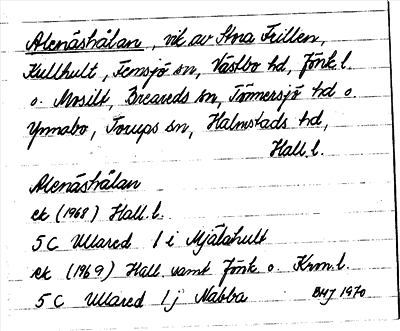 Alenäshålan, vik av Stora Frillen,
Kullhult, Femsjö sn, Västbo hd, Jönk. l.
o. Mosilt, Breareds sn, Tönnersjö hd o.
Ynnabo, Torups sn, Halmstads hd,
Hall. l.
Alenäshålan
ek (1968) Hall. l.
5 C Ullared 1 i Mjälahult
ek (1969) Hall. samt Jönk. o. Kron. l.
5 C Ullared 1 j Nabba BHJ 1970